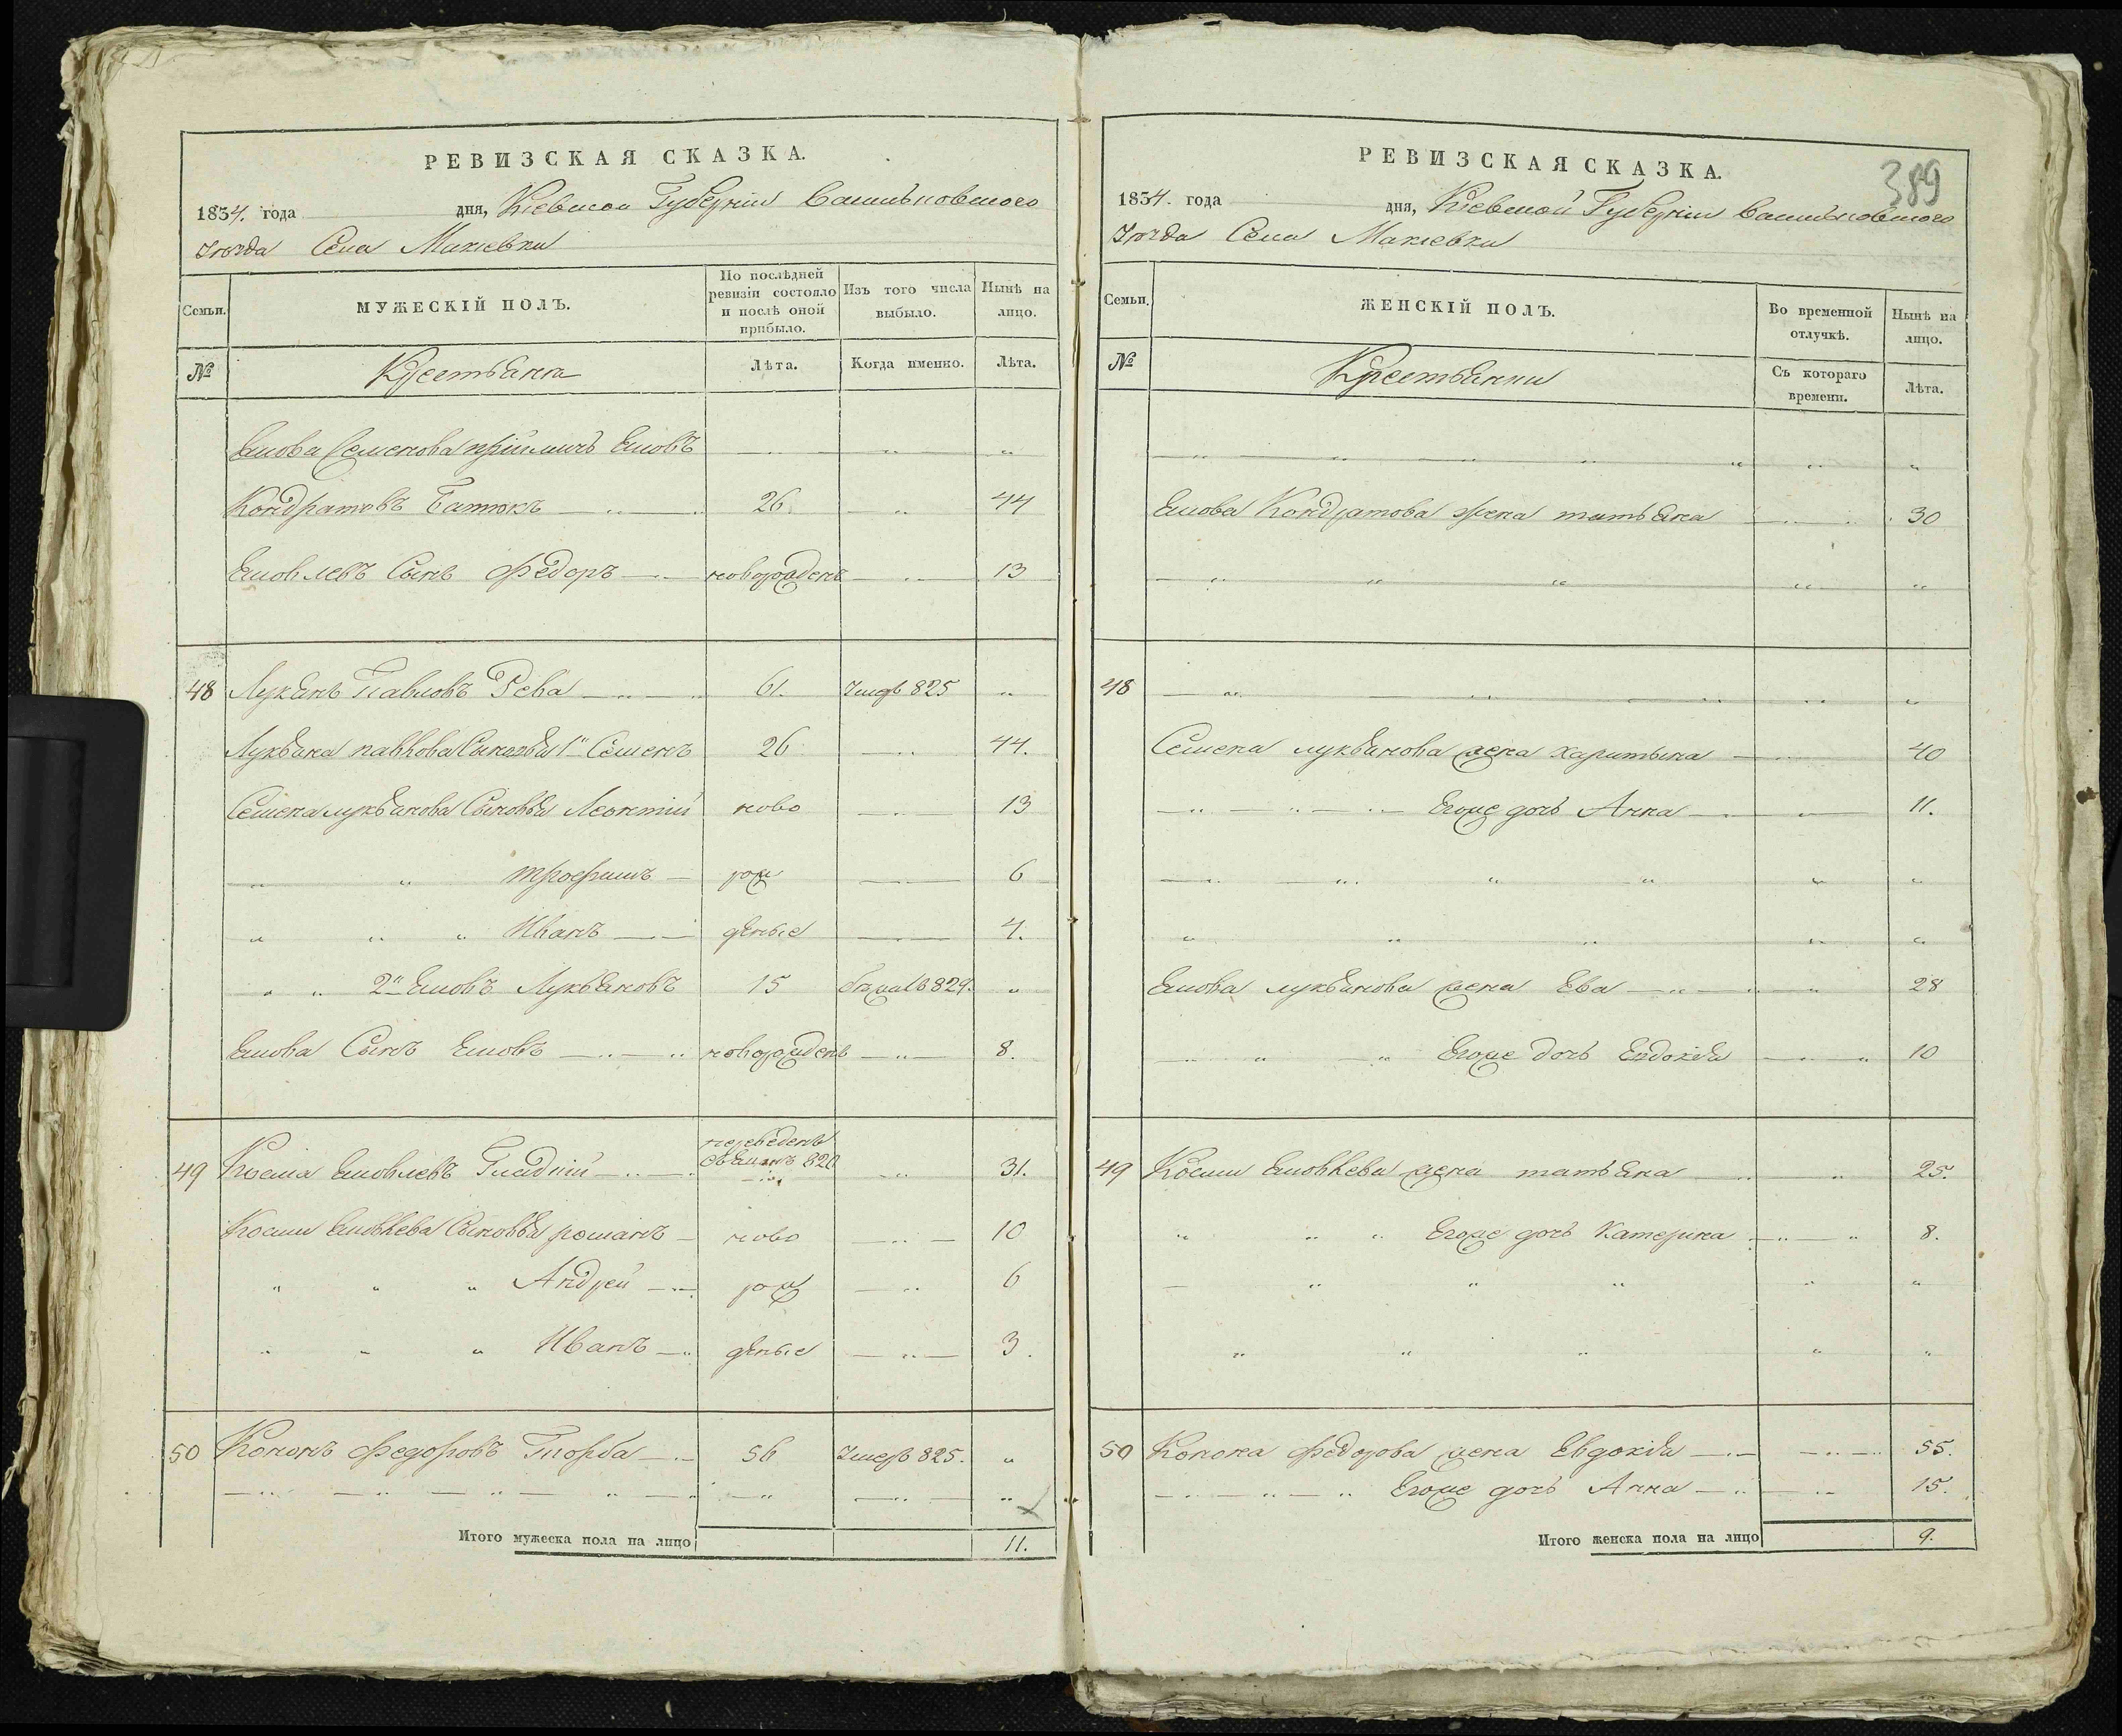 РЕВИЗСКАЯ СКАЗКА.
1834. года дня, Кіевской Губерніи Василковского
Уѣзда Села Макіевки
Семьи.
МУЖЕСКІЙ ПОЛЪ.
По послѣдней ревизіи состояло и послѣ оной прибыло.
Изъ того числа выбыло.
Нынѣ на лицо.
№
Крестьяня
Лѣта.
Когда именно.
Лѣта.
Якова Семенова пріймичь Яковъ
Кондратовъ Батюкъ 26 44
Яковлевъ Сынъ Федоръ новорожденъ 13
48 Лукянъ Павловъ Рева 61. Умеръ 825
Лукьяна павлова Сыновья 1й Семенъ 26 44.
Семена лукьянова Сыновья Леонтій ново 13
трофимъ рож 6
Иванъ деные 4.
2й Яковъ Лукьяновъ 15 829.
Якова Сынъ Яковъ новорожденъ 8.
переведенъ
49 Косма Яковлевъ Гладкій 820 31.
Космы Яковлева Сыновья романъ ново 10
Андрей рож 6
Иванъ деные 3.
50 Кононъ Федоровъ Торба 56 Умеръ 825.
Итого мужеска пола на лицо 11.
РЕВИЗСКАЯ СКАЗКА.
389
1834. года дня, Кіевской Губерніи Василковского
Уѣзда Села Макіевки
Семьи.
ЖЕНСКІЙ ПОЛЪ.
Во временной отлучкѣ.
Нынѣ на лицо.
№
Крестьянки
Съ котораго времени.
Лѣта.
Якова Кондратова жена татьяна 30
48
Семена лукьянова жена харитына 40
Егоже дочь Анна 11.
Якова лукьянова жена Ева 28
Егоже дочь Евдокія 10
49 Космы Яковлева жена татьяна 25.
Егоже дочь Катерина 8.
50 Конона Федорова жена Евдокія 55.
Егоже дочь Анна 15.
Итого женска пола на лицо 9.